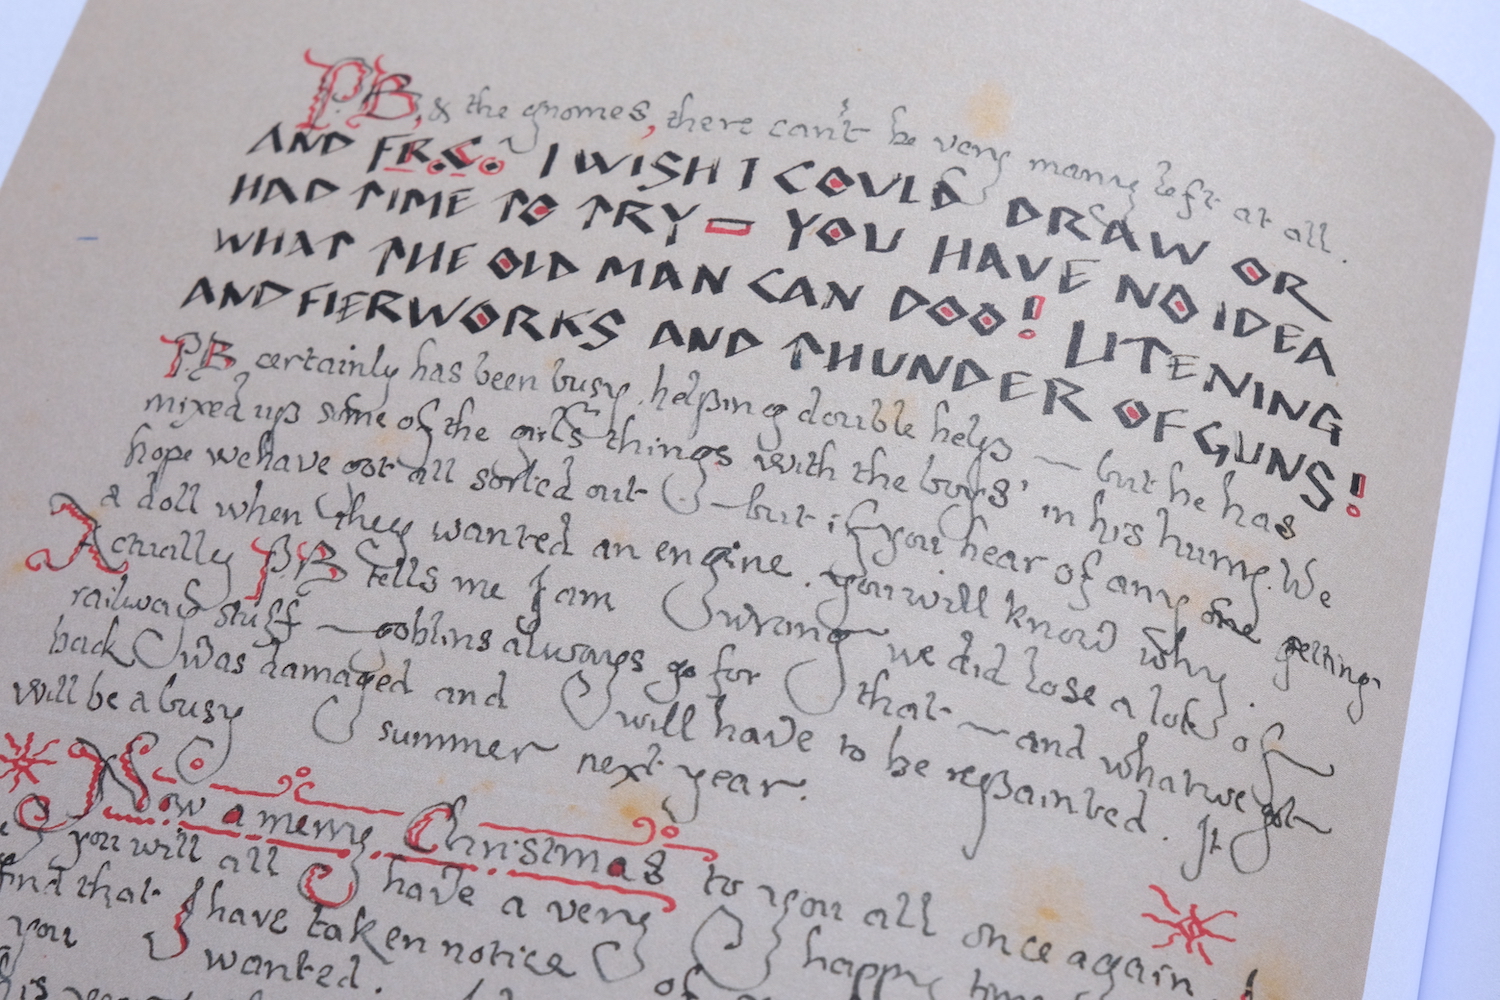 P.B, & the gnomes, there can't be very many left at all.
AND FR.C. I WISH I COULD DRAW OR
HAD TIME TO TRY – YOU HAVE NO IDEA
WHAT THE OLD MAN CAN DOO! LITENING
AND FIERWORKS AND THUNDER OF GUNS!
P.B certainly has been busy helping double help — but he has
mixed up some of the girls things with the boys' in his hurry. We
hope we have got all sorted out — but if you hear of any one getting
a doll when they wanted an engine, you will know why.
Actually P.B tells me I am wrong — we did lose a lot of
railway stuff — goblins always go for that — and what we got
back was damaged and will have to be repainted. It
will be a busy summer next year.
Now a merry Christmas to you all once again
you will all have a very happy
find that I have taken notice of
you wanted.